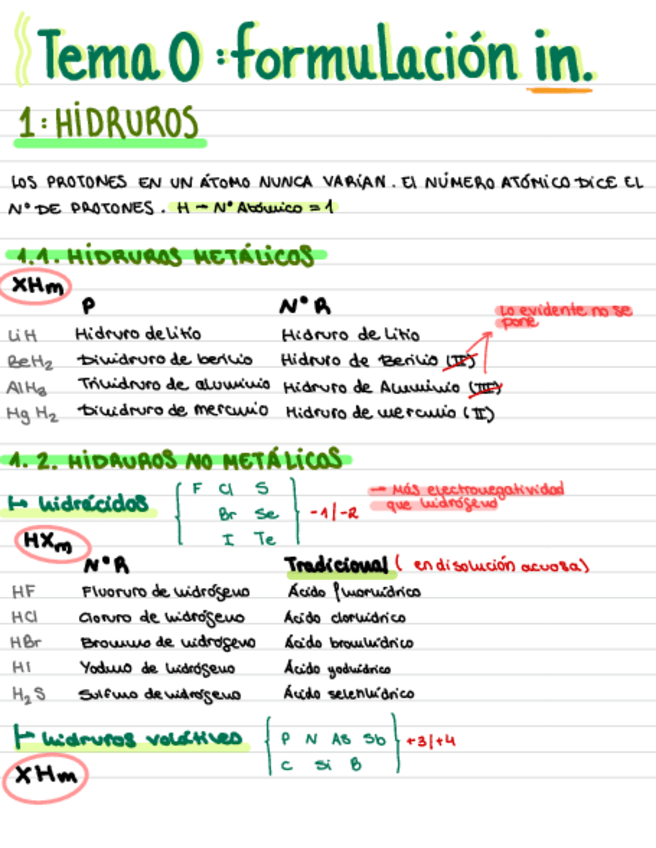 Tema 0: formulación in.
1: HIDRUROS
LOS PROTONES EN UN ÁTOMO NUNCA VARÍAN. El NÚMERO ATÓMICO DICE EL
Nº DE PROTONES. H → Nº Atómico = 1
1.1. HIDRUROS METÁLICOS
XHm
P N°R
Lo evidente no se
pone
LiH Hidruro de litio Hidruro de Litio
BeH2 Dihidruro de berilio Hidruro de Berilio (II)
AlH3 Trihidruro de aluminio Hidruro de Aluminio (III)
HgH2 Dihidruro de mercurio Hidruro de mercurio (II)
1.2. HIDRUROS NO METÁLICOS
↦ hidrácidos F Cl S → Más electronegatividad
Br Se -1/-2 que hidrógeno
I Te
HXm
N°R Tradicional (en disolución acuosa)
HF Fluoruro de hidrógeno Ácido fluorhídrico
HCl Cloruro de hidrógeno Ácido clorhídrico
HBr Bromuro de hidrógeno Ácido bromhídrico
HI Yoduro de hidrógeno Ácido yodhídrico
H2S Sulfuro de hidrógeno Ácido selenhídrico
↦ hidruros volátiles P N As Sb +3/+4
C Si B
XHm